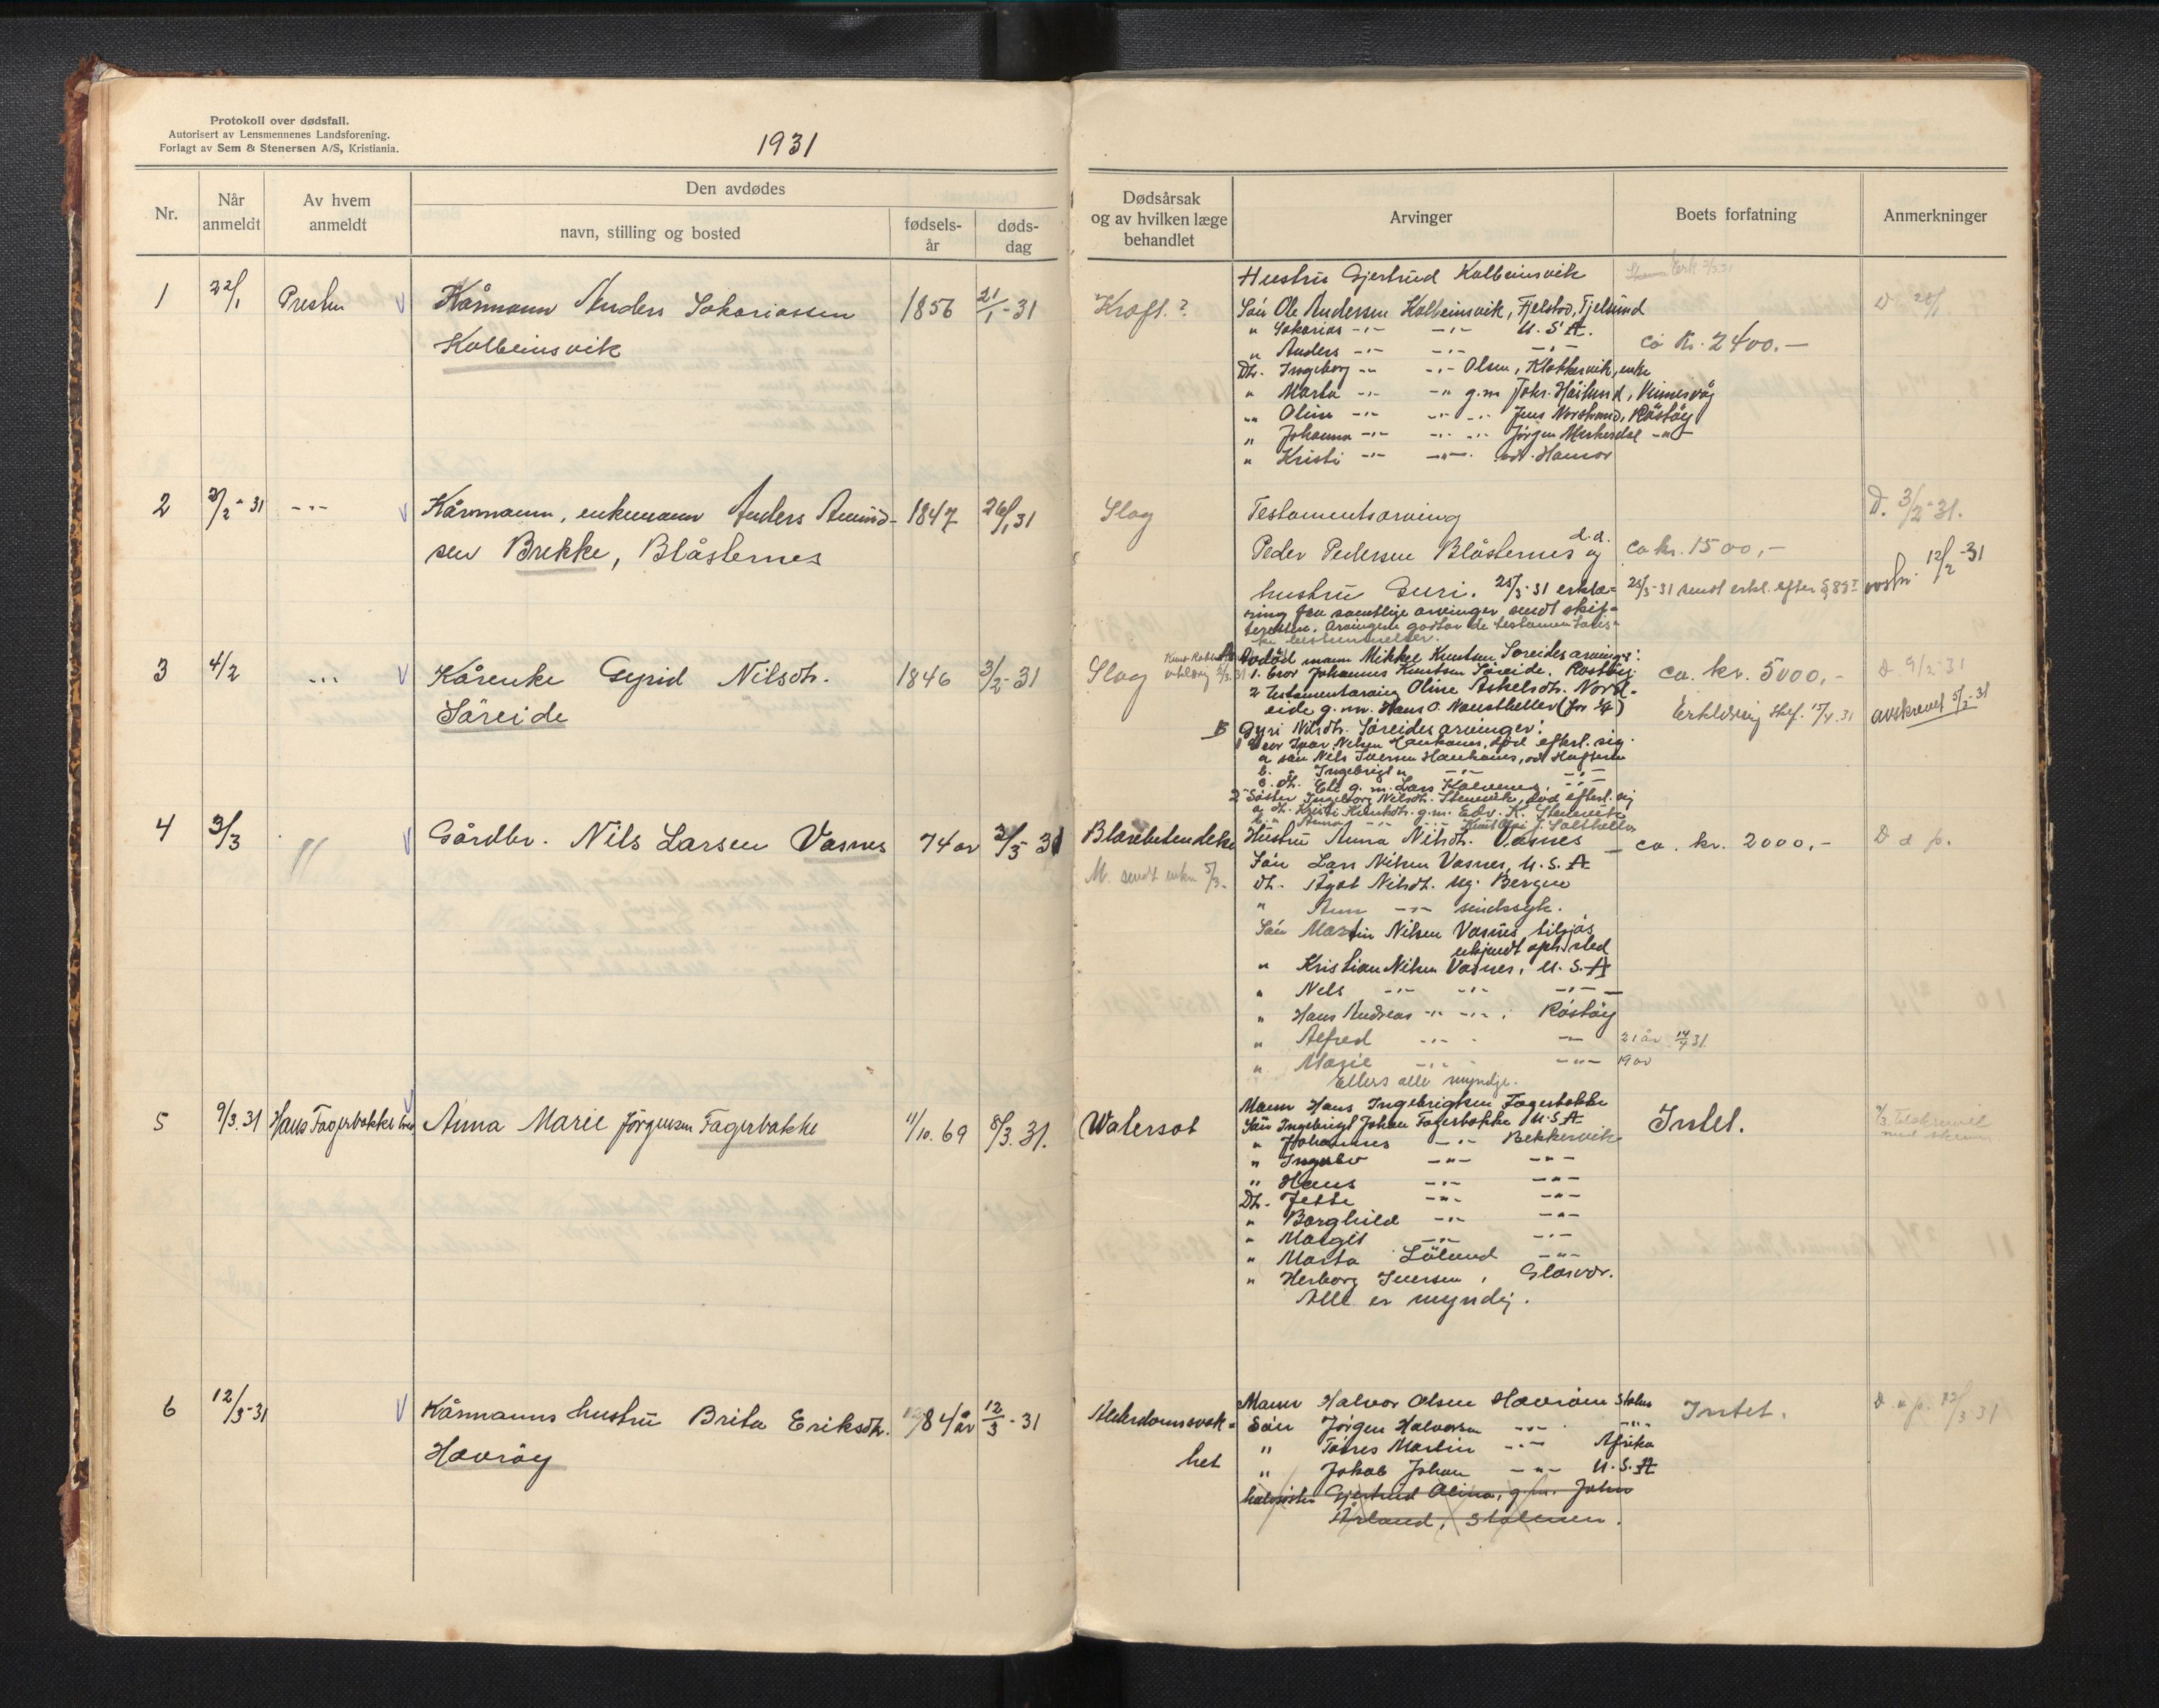 Protokoll over dødsfall.
Autorisert av Lensmennenes Landsforening.
Forlagt av Sem & Stenersen A/S, Kristiania.
1931
Nr.
Når anmeldt
Av hvem anmeldt
Den avdødes
navn, stilling og bosted
fødsels-år
døds-dag
Dødsårsak og av hvilken læge behandlet
Arvinger
Boets forfatning
Anmerkninger
1 22/1 Presten Kårmann Anders Sakariassen 1856 21/1-31 Kræft.?
Kolbeinsvik
Hustru Gjertrud Kolbeinsvik
Sön Ole Andersen Kolbeinsvik, Fjelstö, Fjelsund
" Sakarias -"- -"- U.S.A.
" Anders -"- -"- -"-
Dtr. Ingeborg -"- -"- Olsen, Klokkervik, enke
" Marta -"- -"- g.m. Johs. Höilund, Vinnesvåg
" Oline -"- -"- Jens Norstrand, Röstöy
" Johanna -"- -"- Jörgen Merkesdal -"-
" Kristi -"- -"-
ca kr. 2400.-
D 28/1
2 3/2-31 -"- Kårmann, enkemann Anders Amund- 1847 26/1 31 Slag
sen Brekke, Blåsternes
Testamentsarving
Peder Pedersen Blåsternes d.d. og
hustru Guri. 25/3-31 erklæ-
ring fra samtlige arvinger sendt skif-
teretten. Arvingene godtar de testamentaris-
ke bestemmelser.
ca kr. 1500,-
25/3-31 sendt erkl. efter §85
D. 3/2-31.
avskr. 12/2-31
3 4/2 -"- Kårenke Gyrid Nilsdtr. 1846 3/2-31 Slag
Söreide
A Avdöd mann Mikkel Knutsen Söreides arvinger:
1. bror Johannes Knutsen Söreide, Röstöy
2 testamentarving Oline Askelsdtr. Nord-
eide g.m. Hans O. Naustheller
B Gyri Nilsdtr. Söreides arvinger:
1 Bror Ivar Nilsen Haukanes, död efterl. sig
a sön Nils Iversen Haukanes,
b. " Ingebrigt " -"- -"-
c. dtr. g.m. Lars
2 Söster Ingeborg Nilsdtr. Stenevik, död efterl. sig
a. dtr. Kristi Knutsdtr. g.m. Edv. K. Stenevik
b. " Anna -"-
ca. kr. 5000,-
Erklæring 17/4.31
D 9/2-31
avskrevet 5/2-31
4 3/3 " Gårdbr. Nils Larsen Vasnes 74 år 2/3 31
M. sendt enken 5/3.
Hustru Anna Nilsdtr. Vasnes
Sön Lars Nilsen Vasnes, U.S.A
dtr. Ågot Nilsdtr. ug. Bergen
" Ann -"- sindssyk.
Sön Martin Nilsen Vasnes tilsjøs
ukjendt oph. sted
" Kristian Nilsen Vasnes, U.S.A
" Nels -"- -"- -"-
" Hans Andreas -"- -"-, Röstöy
" Alfred -"- -"- 21 år 14/4 31
" Marie -"- -"- 19 år
Ellers alle myndige.
ca. kr. 2000,-
D d p.
5 9/3.31 Hans Fagerbakke Anna Marie Jörgensen Fagerbakke 11/10.69 8/3.31. Watersot
Mann Hans Ingebrigtsen Fagerbakke
Sön Ingebrigt Johan Fagerbakke U.S.A
" Johannes -"- Bekkervik
" Ingolv -"- -"-
" Hans -"- -"-
Dtr. Jette -"- -"-
" Borghild -"- -"-
" Margit -"- -"-
" Marta Lölund -"-
" Herborg Iversen, Glesvær.
Alle er myndig.
Intet.
6 12/3-31 Kårmanns hustru Brita Eriksdtr. 84 år 12/3-31 Alderdomsvak-
Havröy het
Mann Halvor Olsen Havröen Stolm
Sön Jörgen Halvorsen -"- -"-
" Tönnes Martin -"- Afrika
" Jakob Johan -"- U.S.A
halvsöster Gjertrud Alina, g.m. John
Årland, Stolmen.
Intet.
D d p. 12/3 31